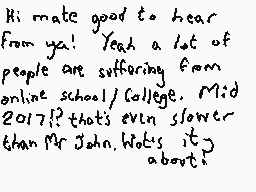 Hi mate good to hear
from ya! Yeah a lot of
people are suffering from
online school/College. Mid
2017!? that's even slower
than Mr John, Wot's it
about?